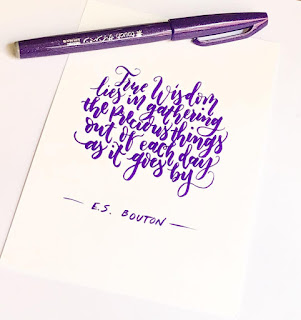 True Wisdom
lies in gathering
the Precious things
out of each day
as it goes by
— E.S. BOUTON —